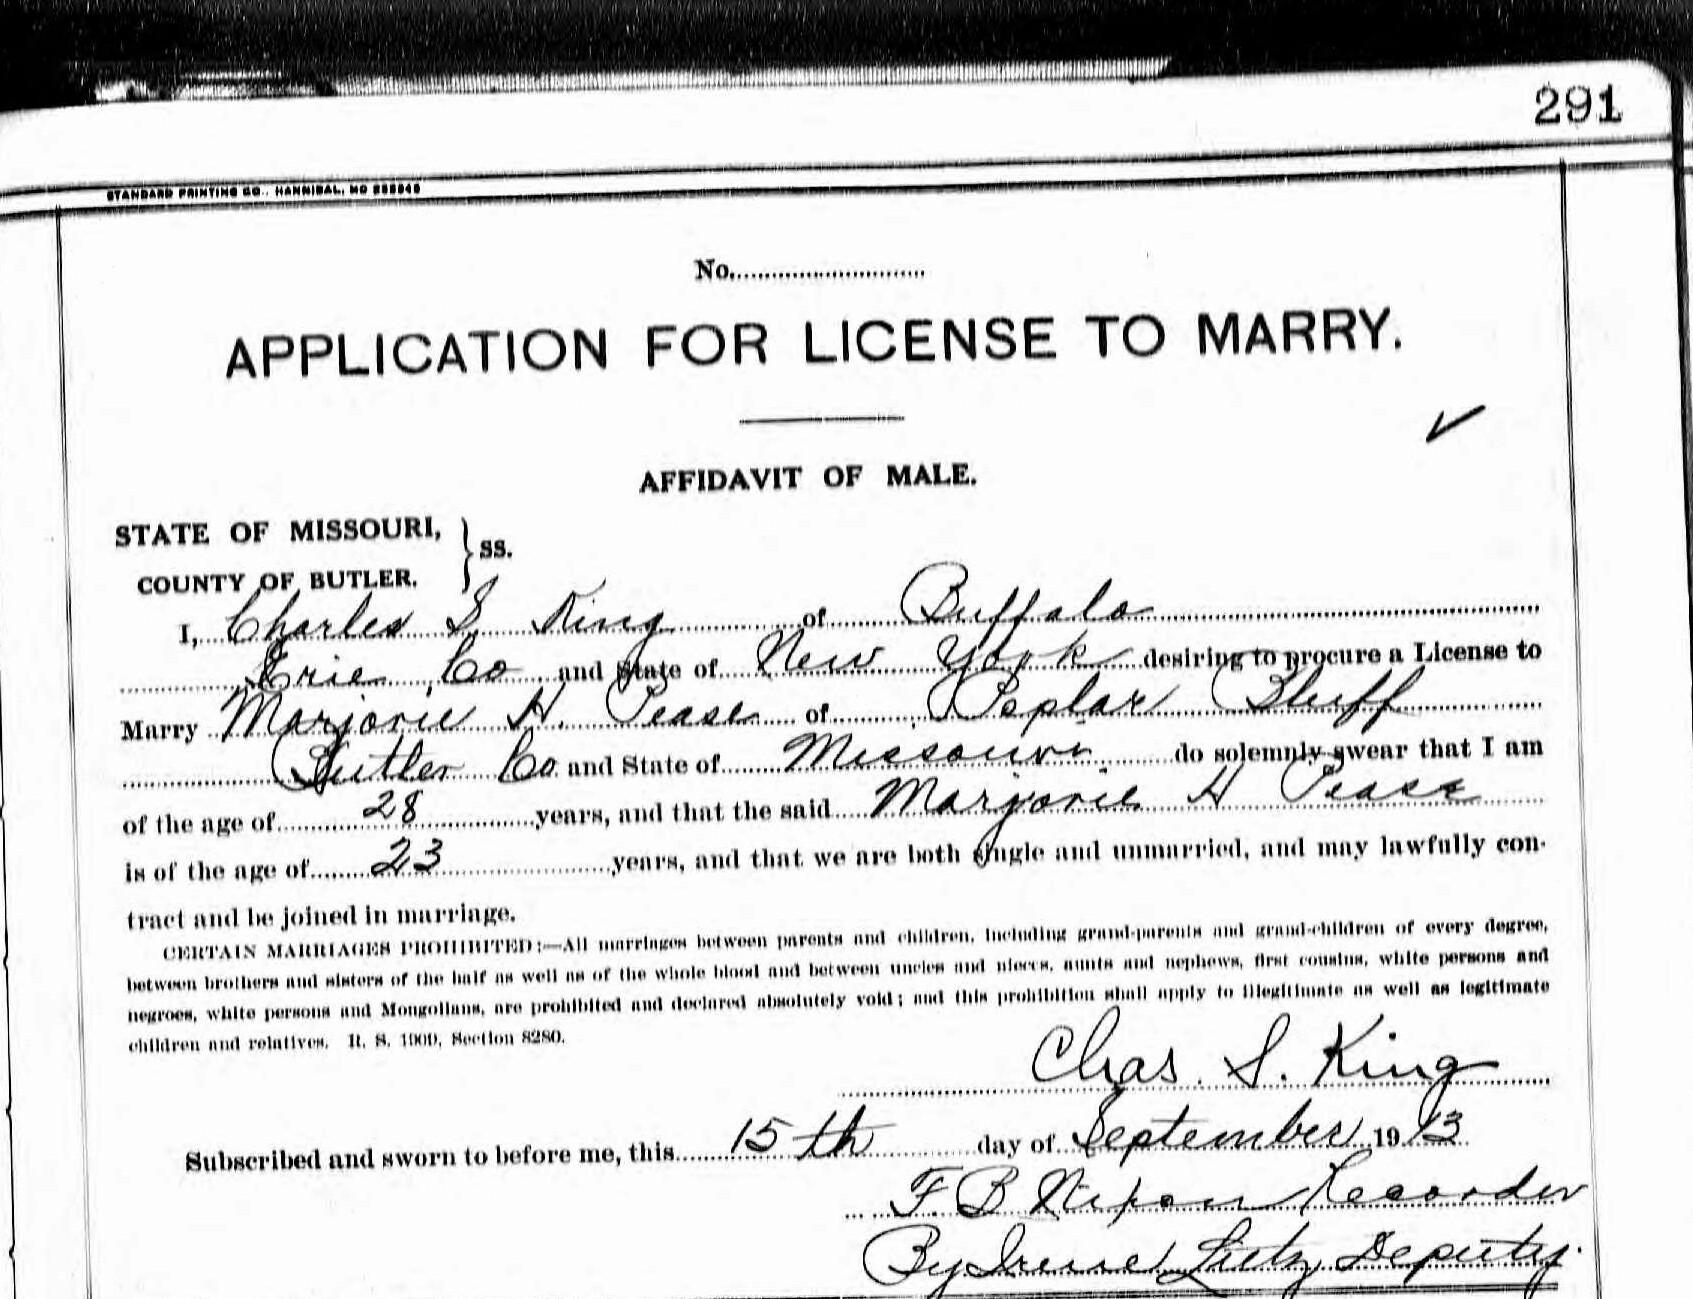 291
STANDARD PRINTING CO., HANNIBAL, MO
No.
APPLICATION FOR LICENSE TO MARRY.
AFFIDAVIT OF MALE.
STATE OF MISSOURI,
COUNTY OF BUTLER. } ss.
I, Charles S King of Buffalo
Erie Co and State of New York desiring to procure a License to
Marry Marjorie H. Pease of Poplar Bluff
Butler Co and State of Missouri do solemnly swear that I am
of the age of 28 years, and that the said Marjorie H Pease
is of the age of 23 years, and that we are both single and unmarried, and may lawfully con-
tract and be joined in marriage.
CERTAIN MARRIAGES PROHIBITED:—All marriages between parents and children, including grand-parents and grand-children of every degree,
between brothers and sisters of the half as well as of the whole blood and between uncles and nieces, aunts and nephews, first cousins, white persons and
negroes, white persons and Mongolians, are prohibited and declared absolutely void; and this prohibition shall apply to illegitimate as well as legitimate
children and relatives. R. S. 1909, Section 8280.
Chas S. King
Subscribed and sworn to before me, this 15th day of September 1913
F. B Nixon Recorder
By Irene Lutz Deputy.